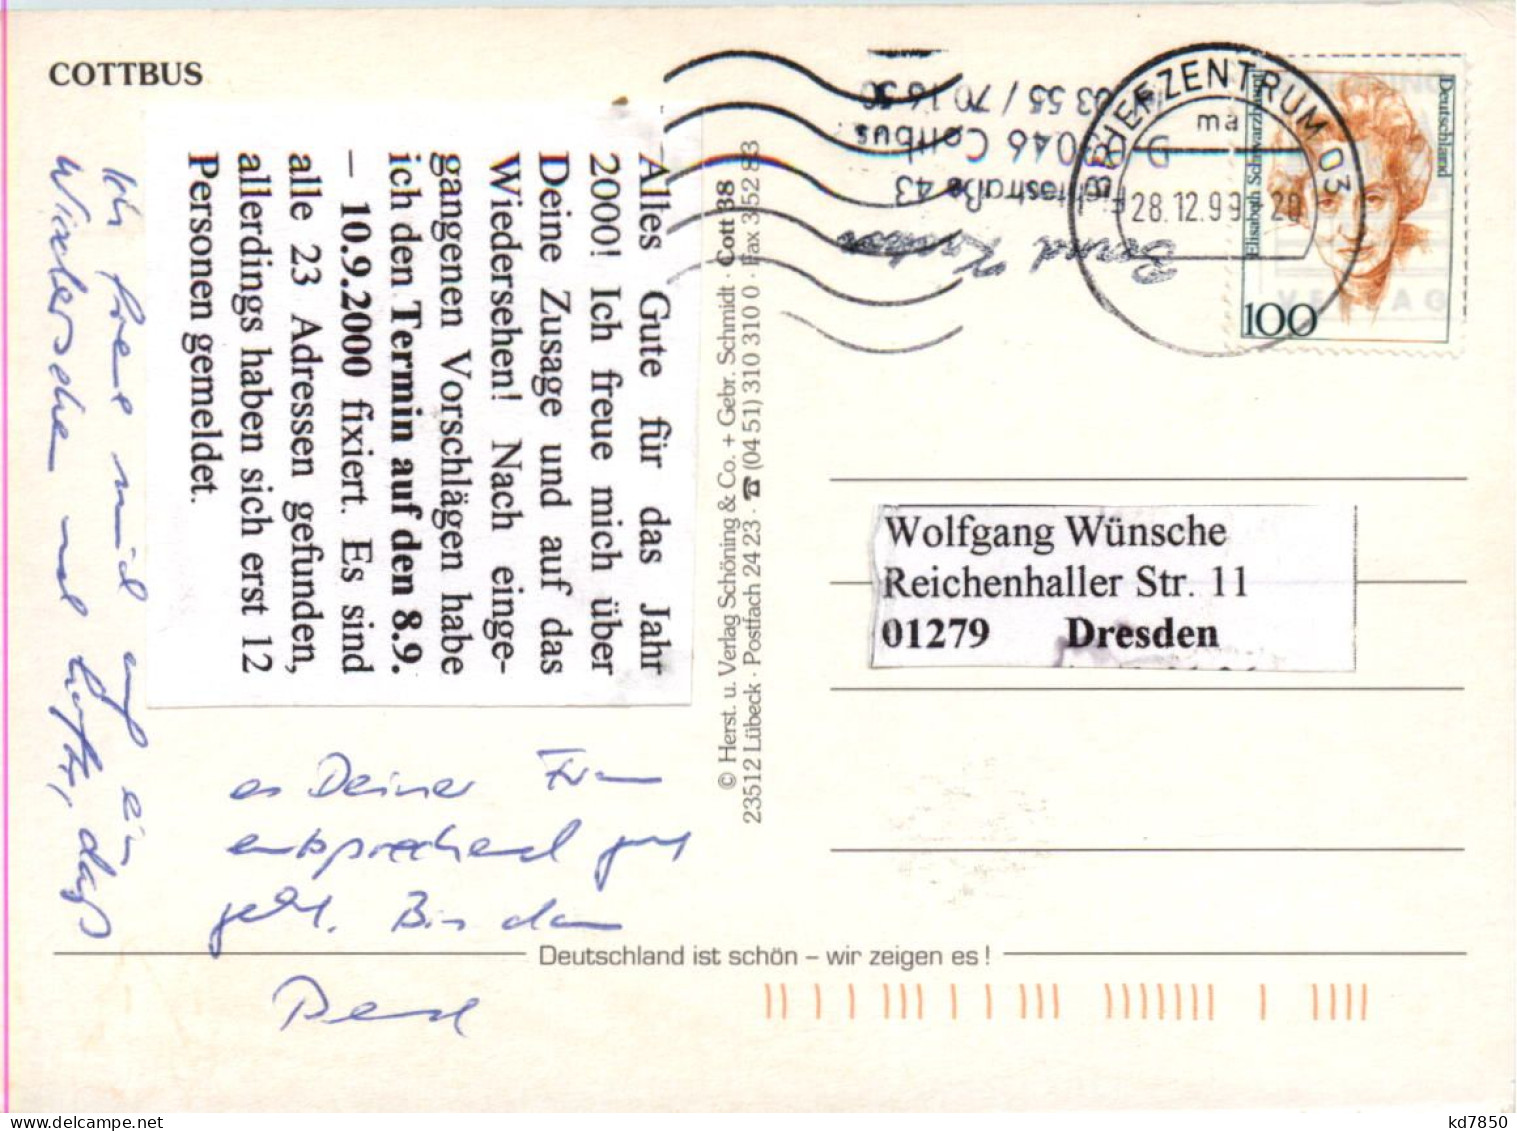 COTTBUS
Alles Gute für das Jahr
2000! Ich freue mich über
Deine Zusage und auf das
Wiedersehen! Nach einge-
gangenen Vorschlägen habe
ich den Termin auf den 8.9.
– 10.9.2000 fixiert. Es sind
alle 23 Adressen gefunden,
allerdings haben sich erst 12
Personen gemeldet.
Ich freue mich auf ein
Wiedersehen und hoffe, dass
es Deiner Frau
entsprechend gut
geht. Bis dann
Bernd
© Herst. u. Verlag Schöning & Co. + Gebr. Schmidt · Cott 38
23512 Lübeck · Postfach 24 23 · ☎ (04 51) 310 310 0 · Fax 352 83
BRIEFZENTRUM 03
ma
28.12.99-20
Deutschland
Elisabeth Schwarzhaupt
100
Bernd
straße 43
D 03046 Cottbus
03 55 / 70 16 50
Wolfgang Wünsche
Reichenhaller Str. 11
01279 Dresden
Deutschland ist schön – wir zeigen es !
kd7850